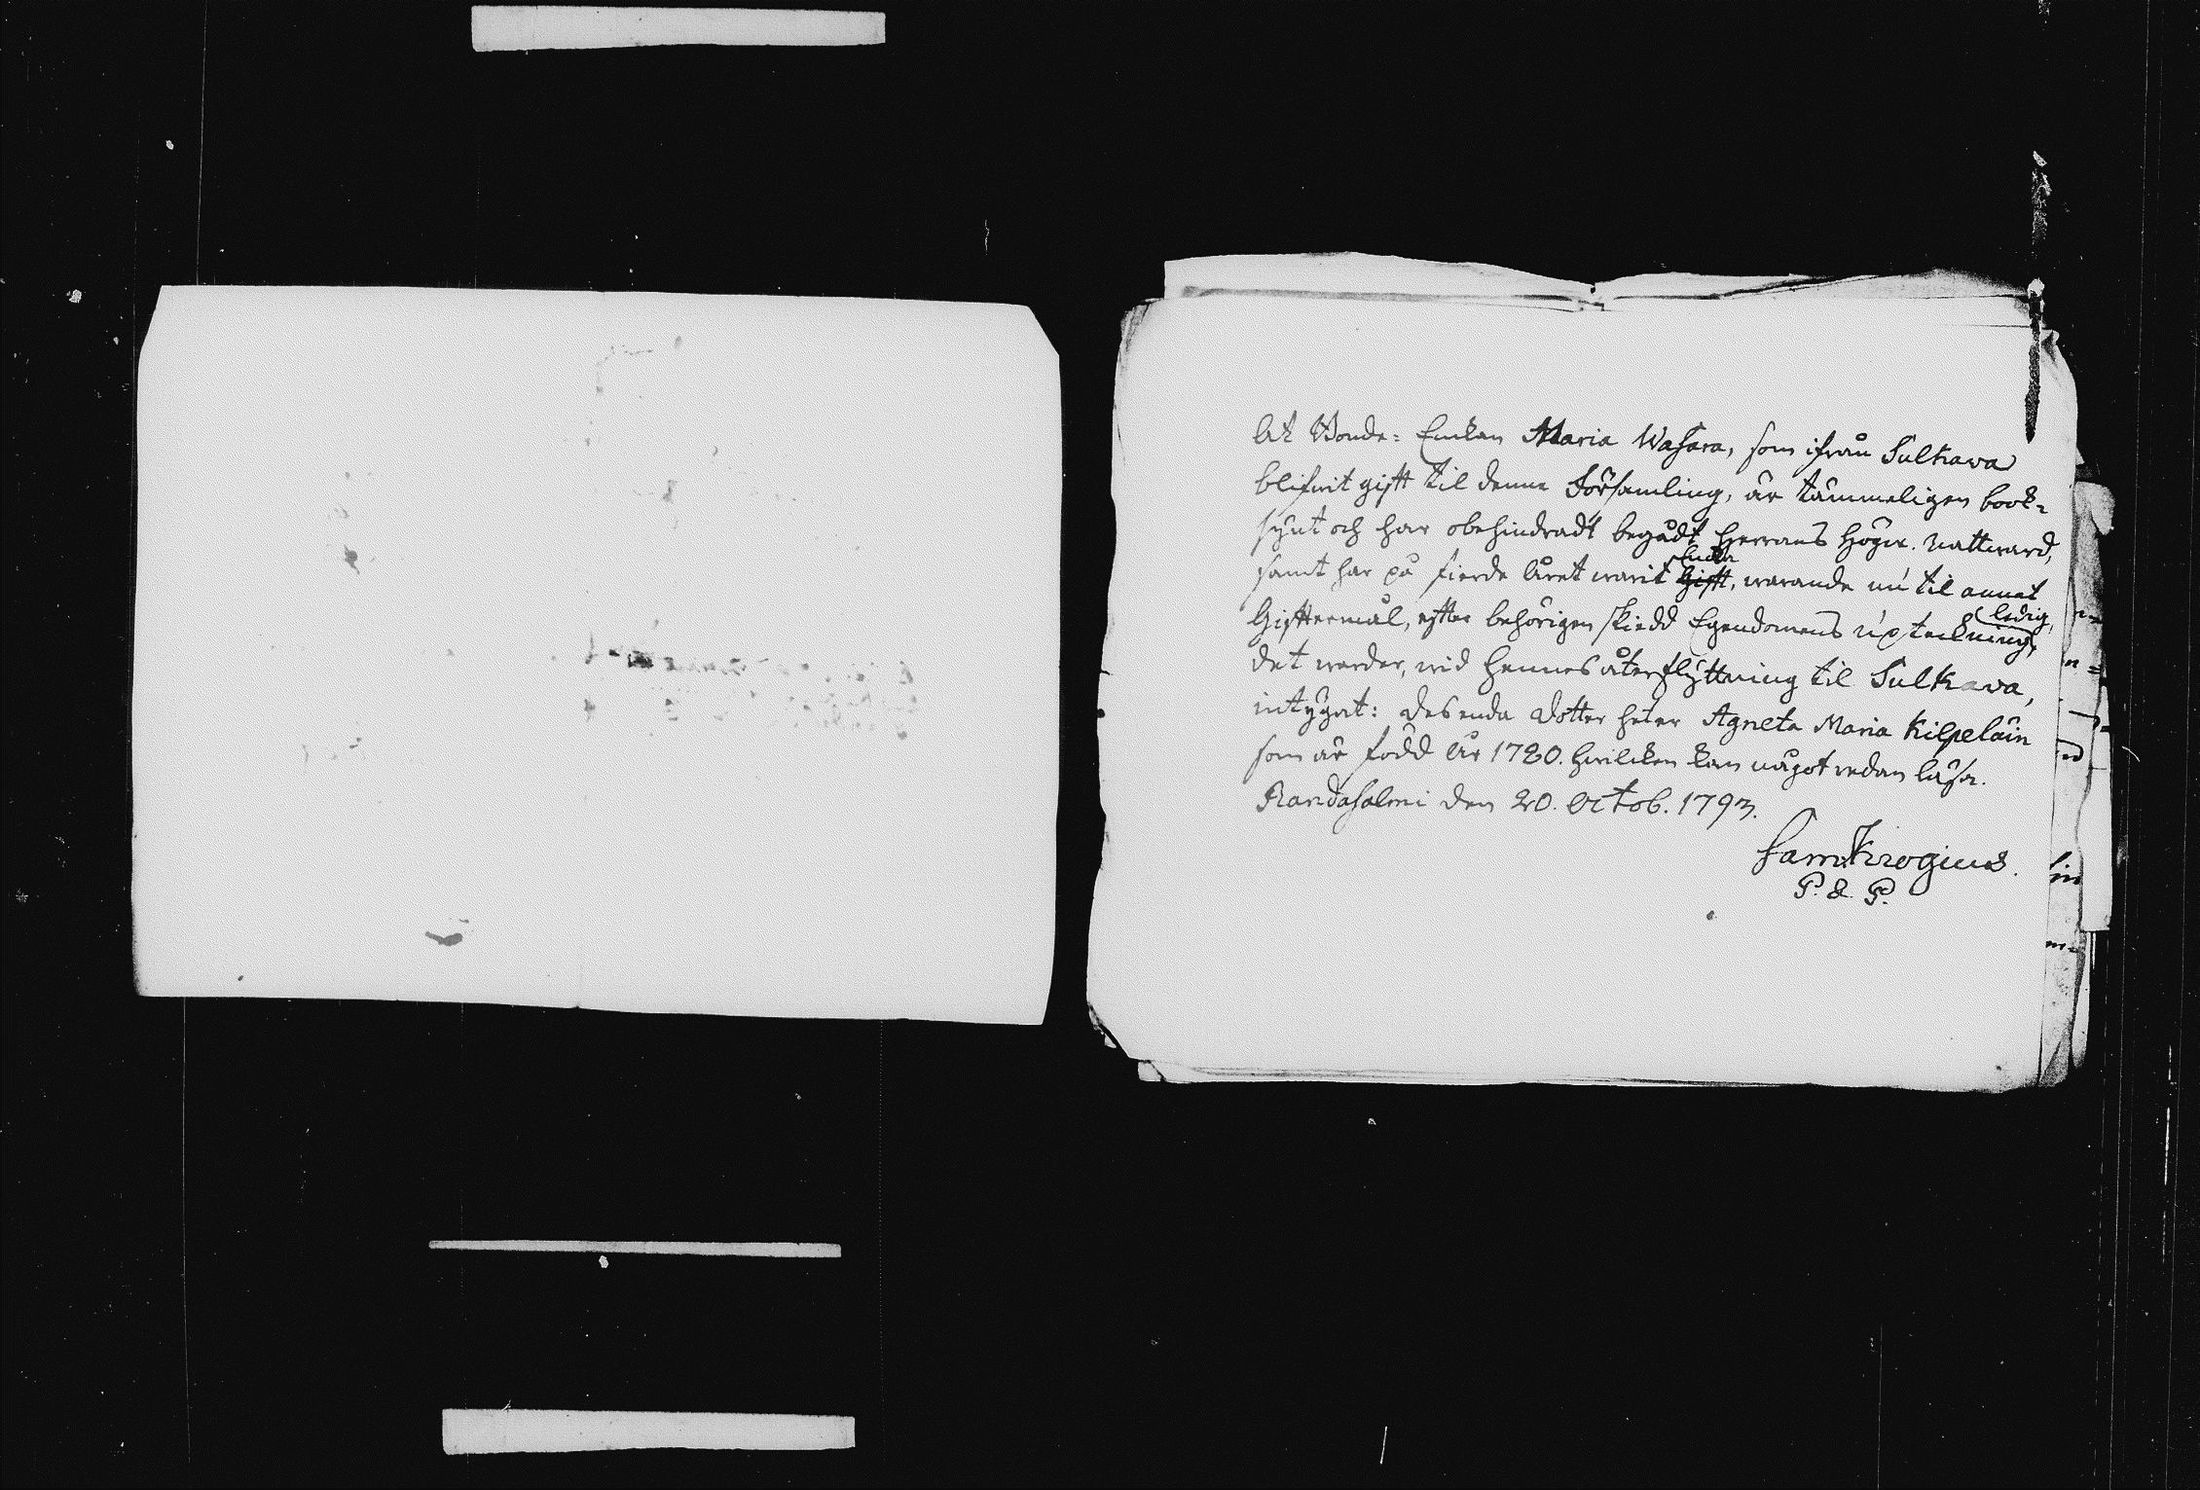 At Bonde-Enckan Maria Wasara, som ifrån Sulkava
blifwit gift til denne Församling, är tämmeligen book-
synt och har obehindradt begådt Herrans Högw. Nattward,
samt har på fierde Året warit Encka, warande nu til annat
Giftermål, efter behörigen skiedd Egendomens upteckning, ledig,
det warder, wid hennes återflyttning til Sulkava,
intygat: des enda dotter heter Agneta Maria Kilpeläin
som är född År 1780. hwilcken kan något redan läsa.
Randasalmi den 20. Octob. 1793.
Sam. Krogius.
P. & P.